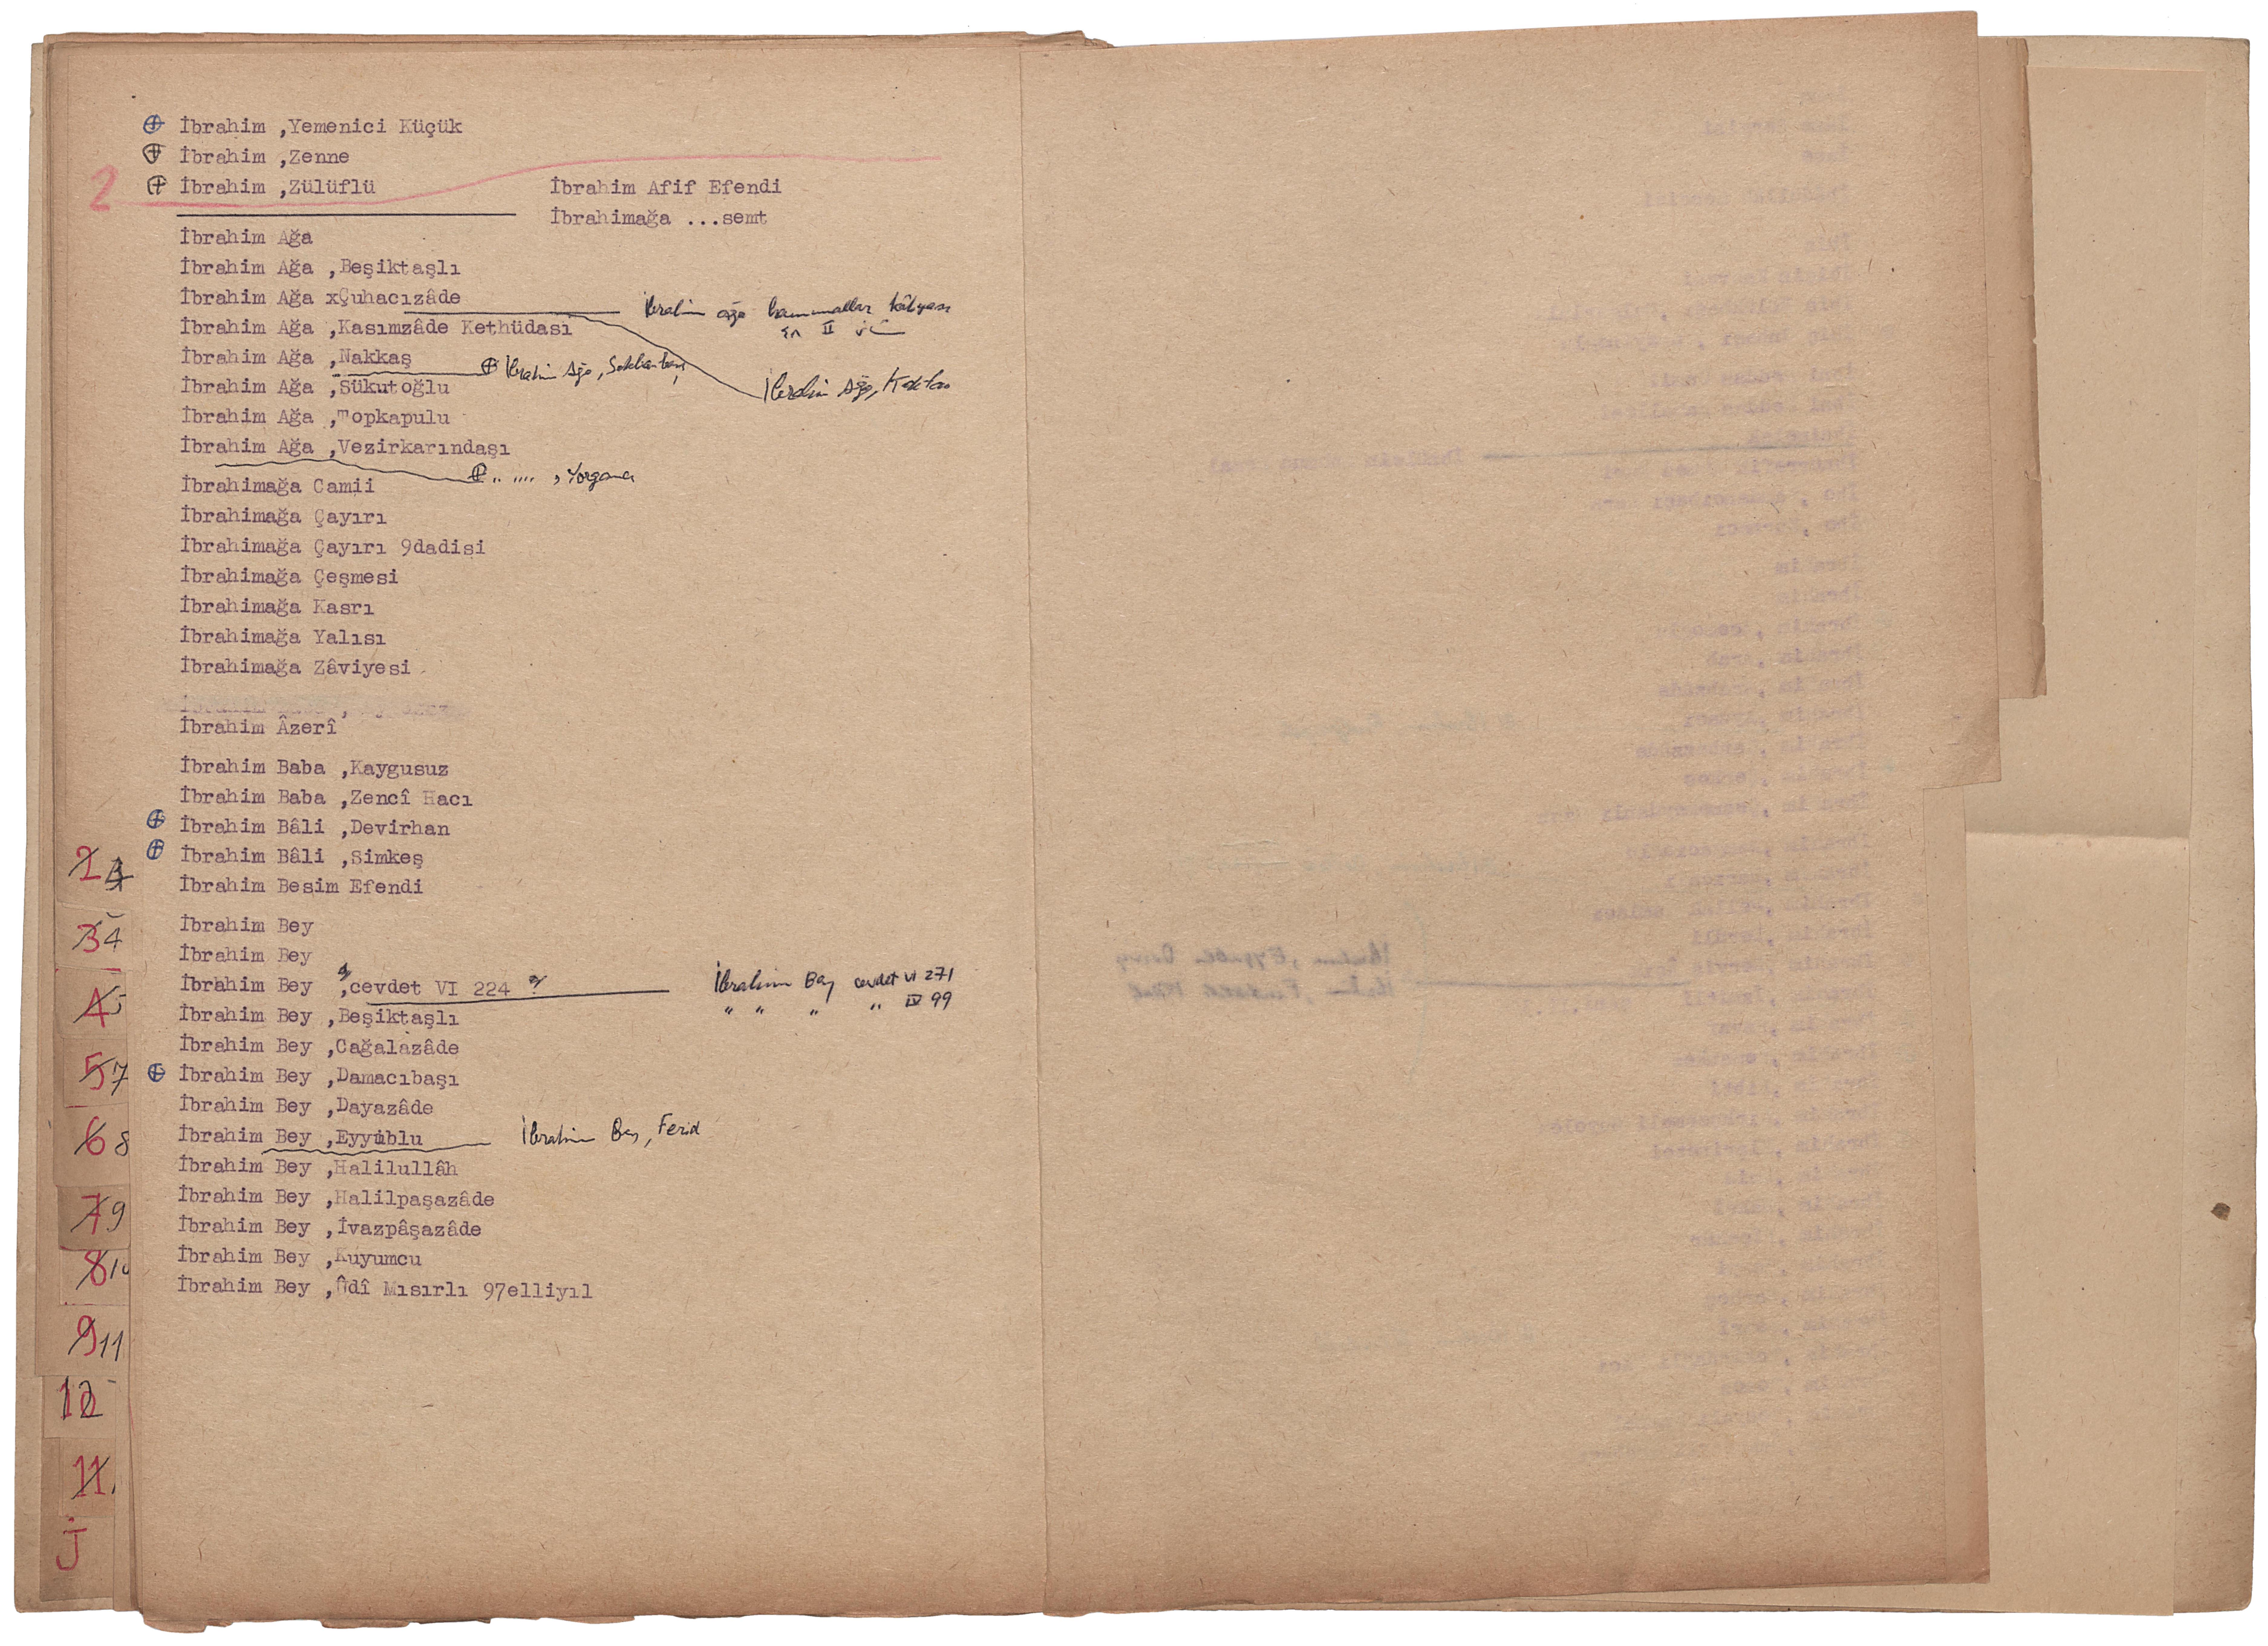 İbrahim ,Yemenici Küçük
İbrahim ,Zenne
2 İbrahim ,Zülüflü
İbrahim Afif Efendi
İbrahimağa ...semt
İbrahim Ağa
İbrahim Ağa ,Beşiktaşlı
İbrahim Ağa xÇuhacızâde
İbrahim ağa hammallar kâhyası
II
İbrahim Ağa ,Kasımzâde Kethüdası
İbrahim Ağa ,Nakkaş
İbrahim Ağa,
İbrahim Ağa ,Sükutoğlu
İbrahim Ağa, Kaptan
İbrahim Ağa ,Topkapulu
İbrahim Ağa ,Vezirkarındaşı
.. .... , Yorgancı
İbrahimağa Camii
İbrahimağa Çayırı
İbrahimağa Çayırı 9dadisi
İbrahimağa Çeşmesi
İbrahimağa Kasrı
İbrahimağa Yalısı
İbrahimağa Zâviyesi
İbrahim Âzerî
İbrahim Baba ,Kaygusuz
İbrahim Baba ,Zencî Hacı
İbrahim Bâli ,Devirhan
İbrahim Bâli ,Simkeş
İbrahim Besim Efendi
İbrahim Bey
İbrahim Bey
İbrahim Bey ,cevdet VI 224
İbrahim Bey cevdet VI 271
" " " " IV 99
İbrahim Bey ,Beşiktaşlı
İbrahim Bey ,Cağalazâde
İbrahim Bey ,Damacıbaşı
İbrahim Bey ,Dayazâde
İbrahim Bey ,Eyyûblu
İbrahim Bey, Ferid
İbrahim Bey ,Halilullâh
İbrahim Bey ,Halilpaşazâde
İbrahim Bey ,İvazpâşazâde
İbrahim Bey ,Kuyumcu
İbrahim Bey ,Ûdî Mısırlı 97elliyıl
2
3 4
4 5
5 7
6 8
7 9
8 10
9 11
12
11
j